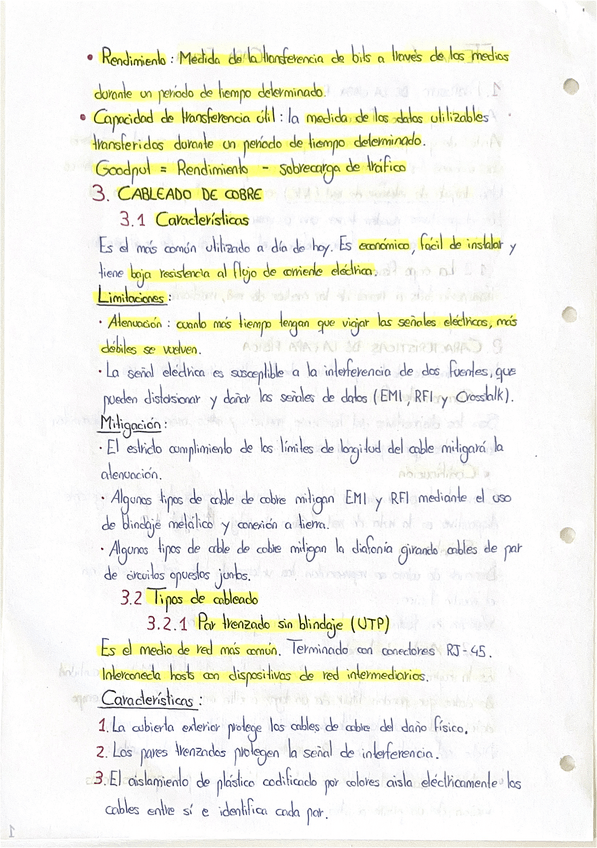 • Rendimiento : Medida de la transferencia de bits a través de los medios
durante un período de tiempo determinado.
• Capacidad de transferencia útil : la medida de los datos utilizables
transferidos durante un período de tiempo determinado.
Goodput = Rendimiento - sobrecarga de tráfico
3. CABLEADO DE COBRE
3.1 Características
Es el más común utilizado a día de hoy. Es económico, fácil de instalar y
tiene baja resistencia al flujo de corriente eléctrica.
Limitaciones :
· Atenuación : cuanto más tiempo tengan que viajar las señales eléctricas, más
débiles se vuelven.
· La señal eléctrica es susceptible a la interferencia de dos fuentes, que
pueden distorsionar y dañar las señales de datos (EMI, RFI y Crosstalk).
Mitigación :
· El estricto cumplimiento de los límites de longitud del cable mitigará la
atenuación.
· Algunos tipos de cable de cobre mitigan EMI y RFI mediante el uso
de blindaje metálico y conexión a tierra.
· Algunos tipos de cable de cobre mitigan la diafonía girando cables de par
de circuitos opuestos juntos.
3.2 Tipos de cableado
3.2.1 Par trenzado sin blindaje (UTP)
Es el medio de red más común. Terminado con conectores RJ-45.
Interconecta hosts con dispositivas de red intermediarios.
Características :
1. La cubierta exterior protege los cables de cobre del daño físico.
2. Los pares trenzados protegen la señal de interferencia.
3. El aislamiento de plástico codificado por colores aisla eléctricamente los
cables entre sí e identifica cada par.